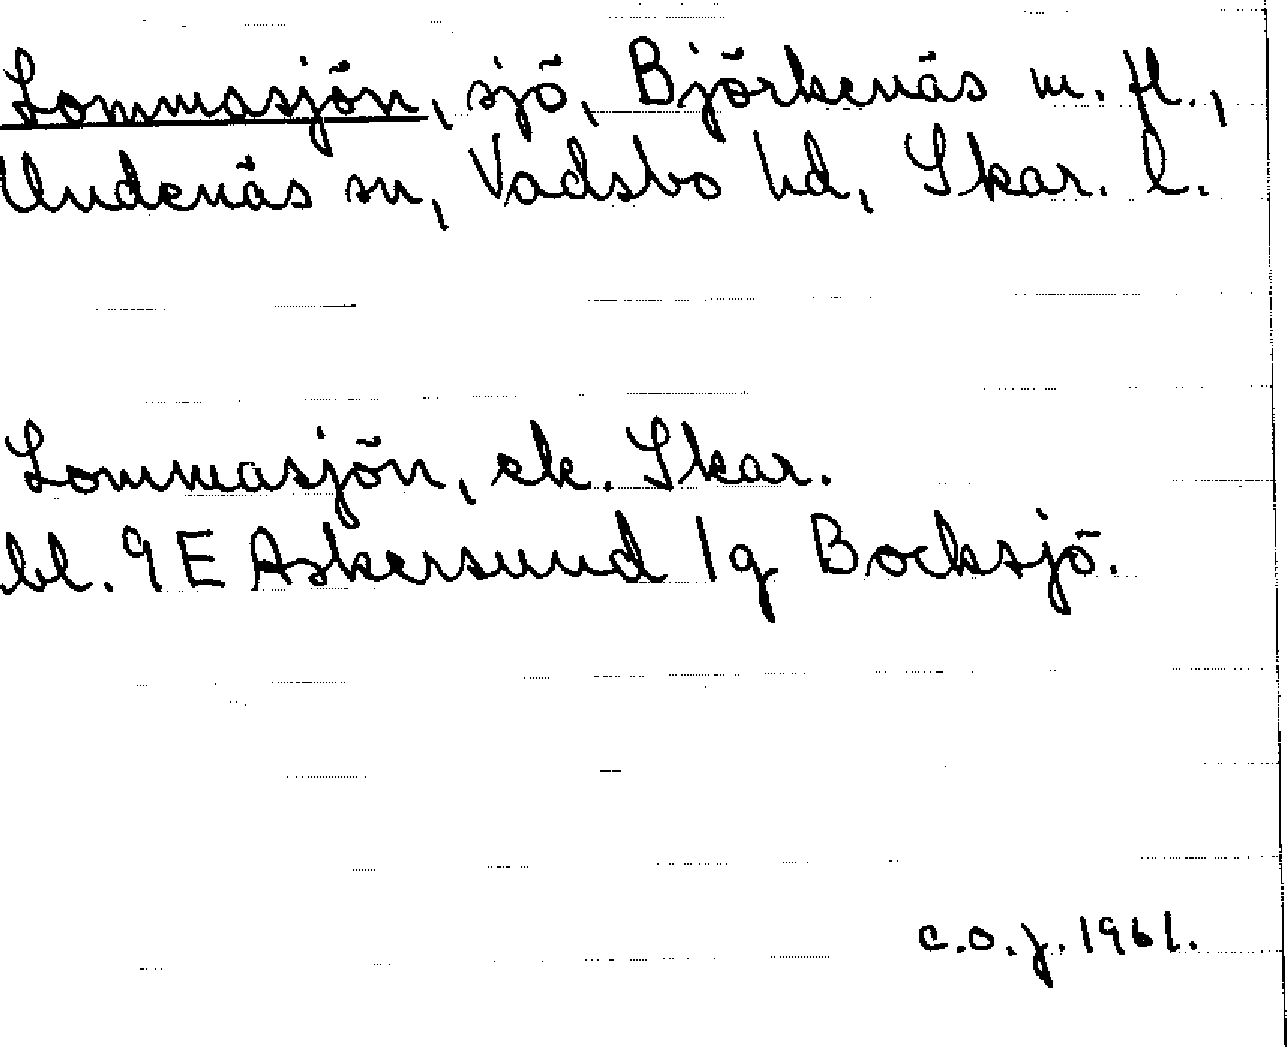 Lommasjön, sjö, Björkenäs m. fl.,
Undenäs sn, Vadsbo hd, Skar. l.
Lommasjön, ek. Skar.
bl. 9E Askersund 1g Bocksjö.
C.O.J. 1961.